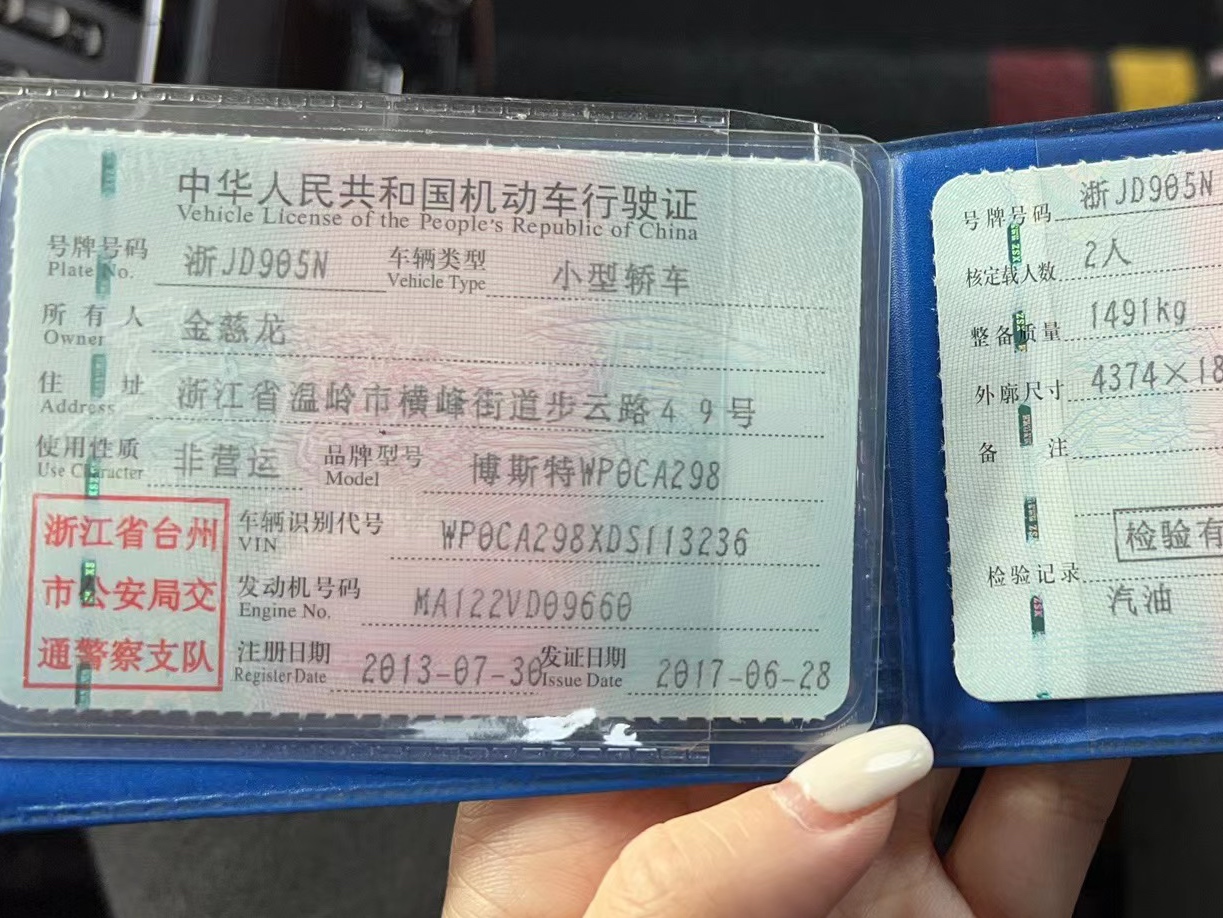 中华人民共和国机动车行驶证
Vehicle License of the People's Republic of China
号牌号码 浙JD905N 车辆类型 小型轿车
Plate No. Vehicle Type
所有人 金慈龙
Owner
住址 浙江省温岭市横峰街道步云路49号
Address
使用性质 非营运 品牌型号 博斯特WP0CA298
Use Character Model
浙江省台州
市公安局交
通警察支队
车辆识别代号 WP0CA298XDS113236
VIN
发动机号码 MA122VD09660
Engine No.
注册日期 2013-07-30 发证日期 2017-06-28
Register Date Issue Date
号牌号码 浙JD905N
核定载人数 2人
整备质量 1491kg
外廓尺寸 4374×18
备注
检验有
检验记录
汽油